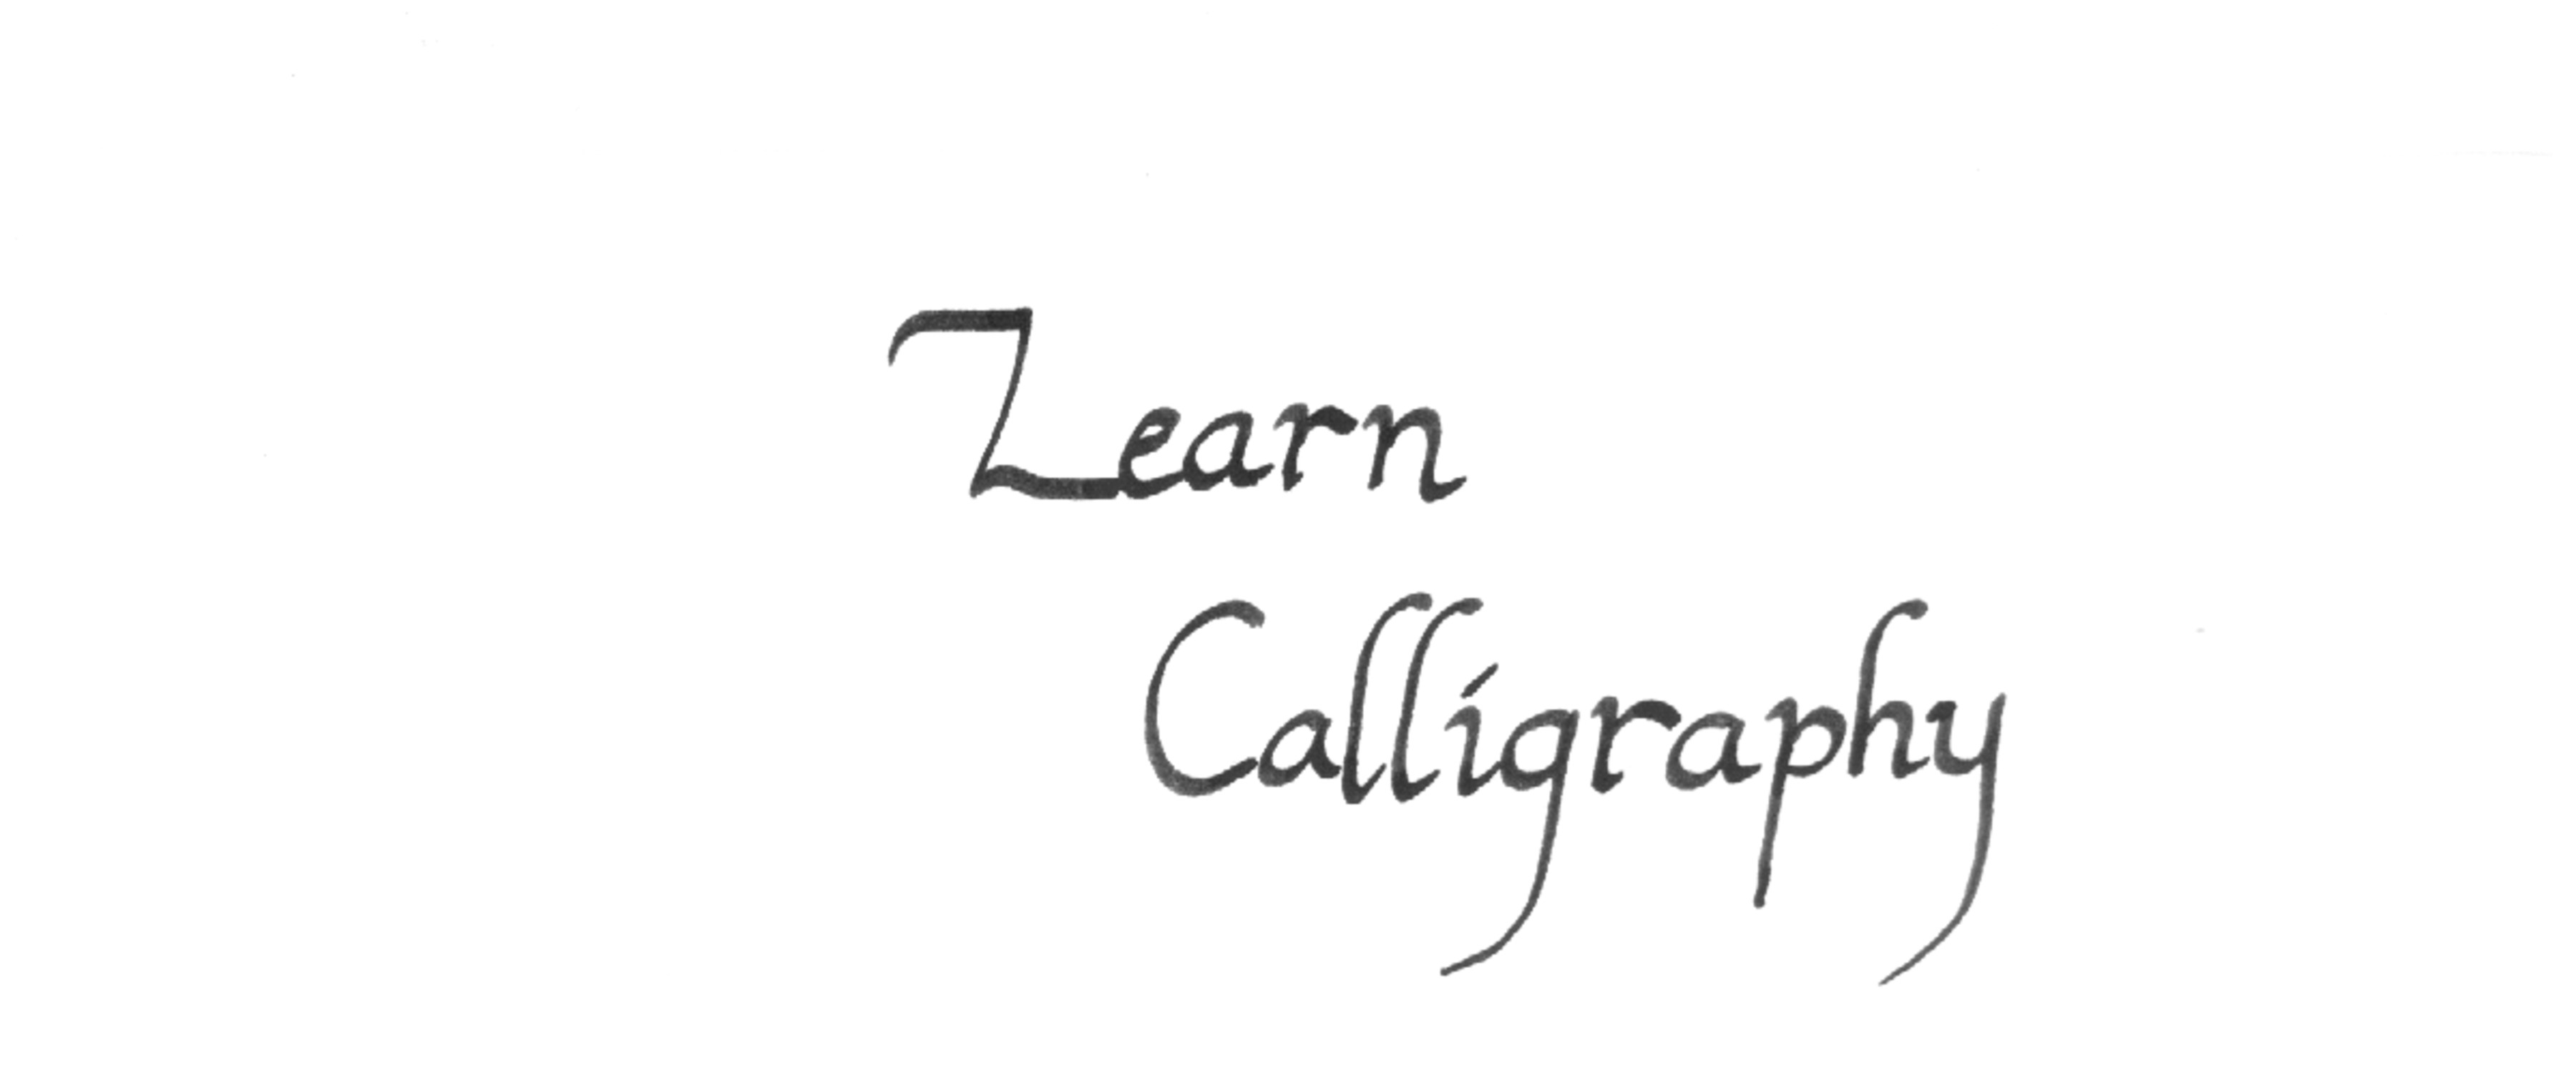 Learn
Calligraphy